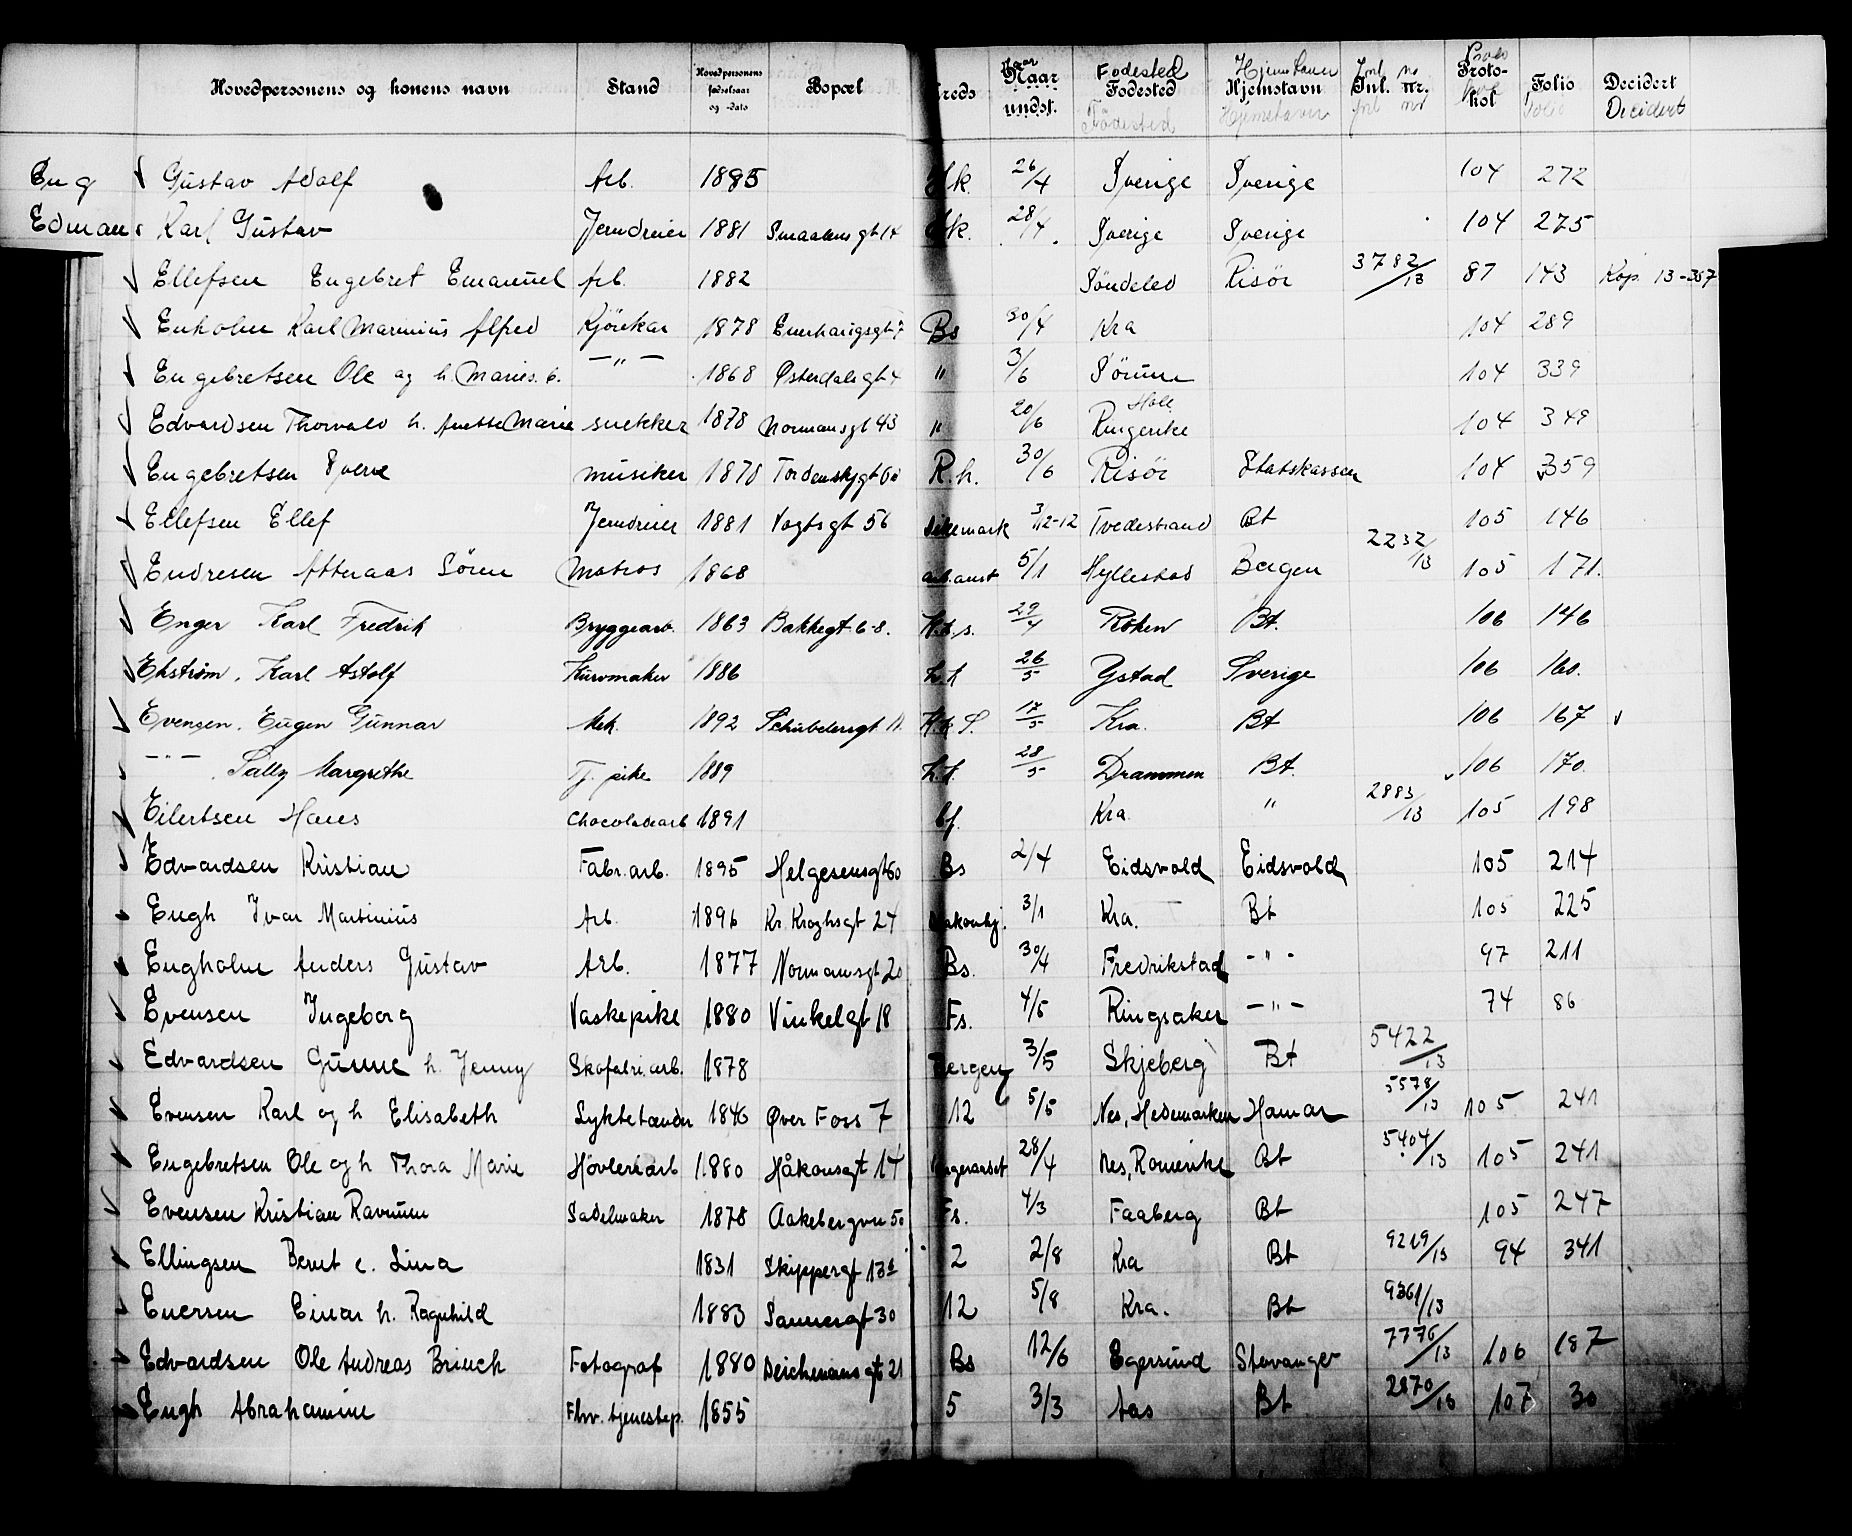 Hovedpersonens og konens navn Stand Hovedpersonens fødselsaar og -dato Bopæl Kreds Naar undst. Fødested Hjemstavn Jnl. nr. Protokol Folio Decidert
Eng Gustav Adolf Arb. 1885 26/4 Sverige Sverige 104 272
Edman Karl Gustav Jerndreier 1881 Smaalensgt 14 28/4 Sverige Sverige 104 275
Ellefsen Engebret Emanuel Arb. 1882 Söndeled Risör 3782/13 87 143 Kop. 13-357
Enholm Karl Marinius Alfred Kjörekar 1878 Enerhaugsgt 7 Bs 30/4 Kra 104 289
Engebretsen Ole og h. Maries. b. —"— 1868 Østerdalsgt 4 " 3/6 Sörum 104 339
Edvardsen Thorvald h. Anette Marie snekker 1878 Normansgt 43 " 20/6 Hole Ringerike 104 349
Engebretsen Sverre musiker 1878 Tordenskjgt R.h. 30/6 Risör Statskassen 104 359
Ellefsen Ellef Jerndreier 1881 Vogtsgt 56 Dikemark 3/12-12 Tvedestrand Bt 105 146
Endresen Atteraas Sören Matros 1868 arb.anst 5/1 Hyllestad Bergen 2232/13 105 171.
Enger Karl Fredrik Bryggearb. 1863 Bakkegt. 6-8. 29/4 Röken Bt. 106 146
Ekström, Karl Astolf Kurvmaker 1886 26/5 Ystad Sverige 106 160.
Evensen, Eugen Gunnar Mek. 1892 Schübelersgt 11 17/5 Kra. Bt 106 167
—"— , Sally Margrethe Tj. pike 1889 28/5 Drammen Bt. 106 170.
Eilertsen Hans Chocoladearb 1891 Kra. " 2883/13 105 198
Edvardsen Kristian Fabr.arb. 1895 Helgesensgt 60 Bs 2/4 Eidsvold Eidsvold 105 214
Engh Ivar Martinius Arb. 1896 Kr. Kroghsgt 24 3/1 Kra. Bt 105 225
Engholm Anders Gustav Arb. 1877 Normansgt 20 Bs. 30/4 Fredrikstad -"- 97 211
Evensen Ingeborg Vaskepike 1880 Vinkelgt 18 Fs. 4/5 Ringsaker —"— 74 86
Edvardsen Gunne h. Jenny Skofabr.arb. 1878 Bergen 3/5 Skjeberg Bt 5422/13
Evensen Karl og h Elisabeth Lyktetænder 1846 Øver Foss 7 12 5/5 Nes, Hedemarken Hamar 5578/13 105 241
Engebretsen Ole og h Thora Marie Hövleriarb 1880 Håkonsgt 14 28/4 Nes, Romerike Bt 5404/13 105 241
Evensen Kristian Ravnum Sadelmaker 1878 Aakebergvn 50 Fs. 4/3 Faaberg Bt 105 247
Ellingsen Bernt e. Lina 1831 Skippergt 13 2 2/8 Kra Bt 9219/13 94 341
Enersen Einar h. Ragnhild 1883 Sannergt 30 12 5/8 Kra. Bt 9361/13
Edvardsen Ole Andreas Brinck Fotograf 1880 Deichmans gt 21 Bs 12/6 Egersund Stavanger 7776/13 106 187
Engh Abrahamine Fhv. tjenestep. 1855 5 3/3 Aas Bt 2870/13 107 30